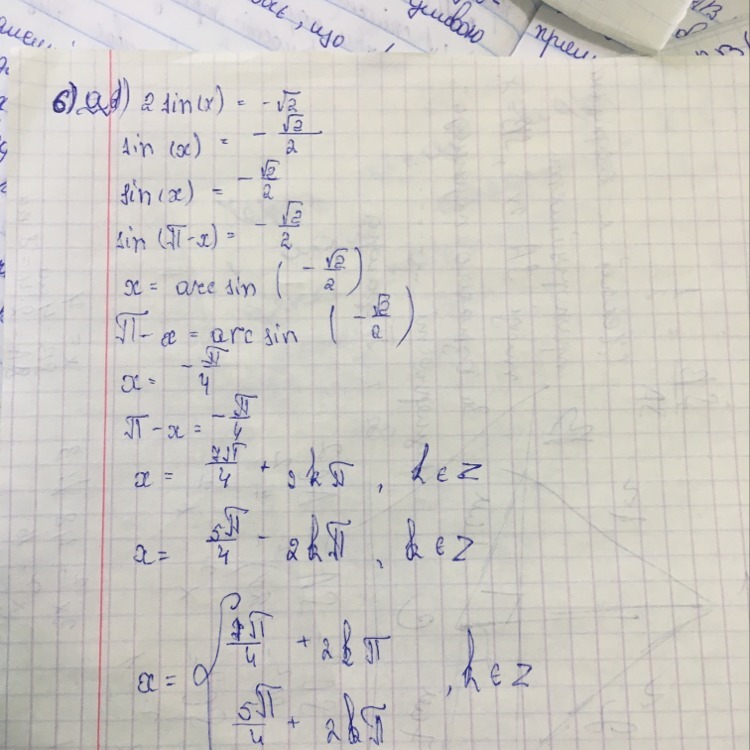 що
умовою
6) a) 1) 2 sin(x) = -√2
sin (x) = - √2/2
sin(x) = - √2/2
sin (π-x) = - √2/2
x = arc sin ( - √2/2 )
π - x = arc sin ( - √2/2 )
x = - π/4
π - x = - π/4
x = 7π/4 + 2kπ , k ∈ Z
x = 5π/4 - 2kπ , k ∈ Z
x = { 7π/4 + 2kπ
, k ∈ Z
5π/4 + 2kπ